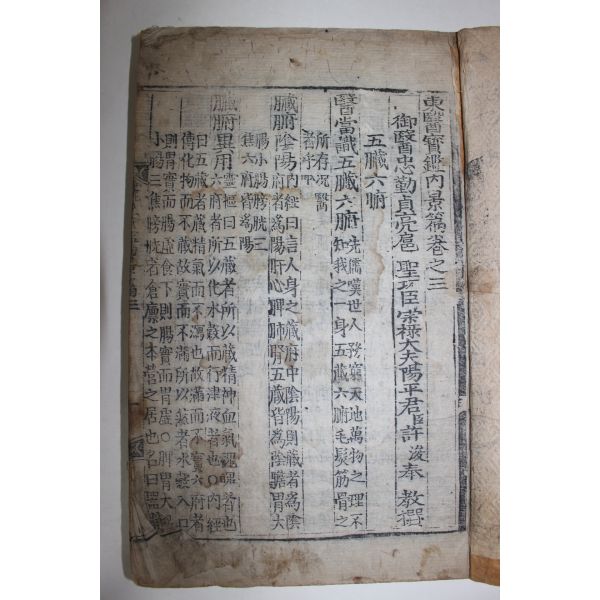 東醫寶鑑內景篇卷之三
御醫忠勤貞亮扈 聖功臣崇祿大夫陽平君臣許浚奉 教撰
五臟六腑
醫當識五臟六腑 先儒嘆世人務窮天地萬物之理不
知我之一身五臟六腑毛髮筋骨之
所存况醫
者乎
臟腑陰陽 內經曰言人身之藏府中陰陽則藏者爲陰
府者爲陽肝心脾肺腎五藏皆爲陰膽胃大
腸小腸膀胱三
焦六府皆爲陽
臟腑異用 靈樞曰五藏者所以藏精神血氣魂魄者也
六府者所以化水穀而行津液者也○內經
曰五藏者藏精氣而不瀉也故滿而不實六府者
傳化物而不藏故實而不滿所以然者水穀入口
則胃實而腸虛食下則腸實而胃虛○脾胃大
小腸三焦膀胱者倉廩之本營之居也名曰器